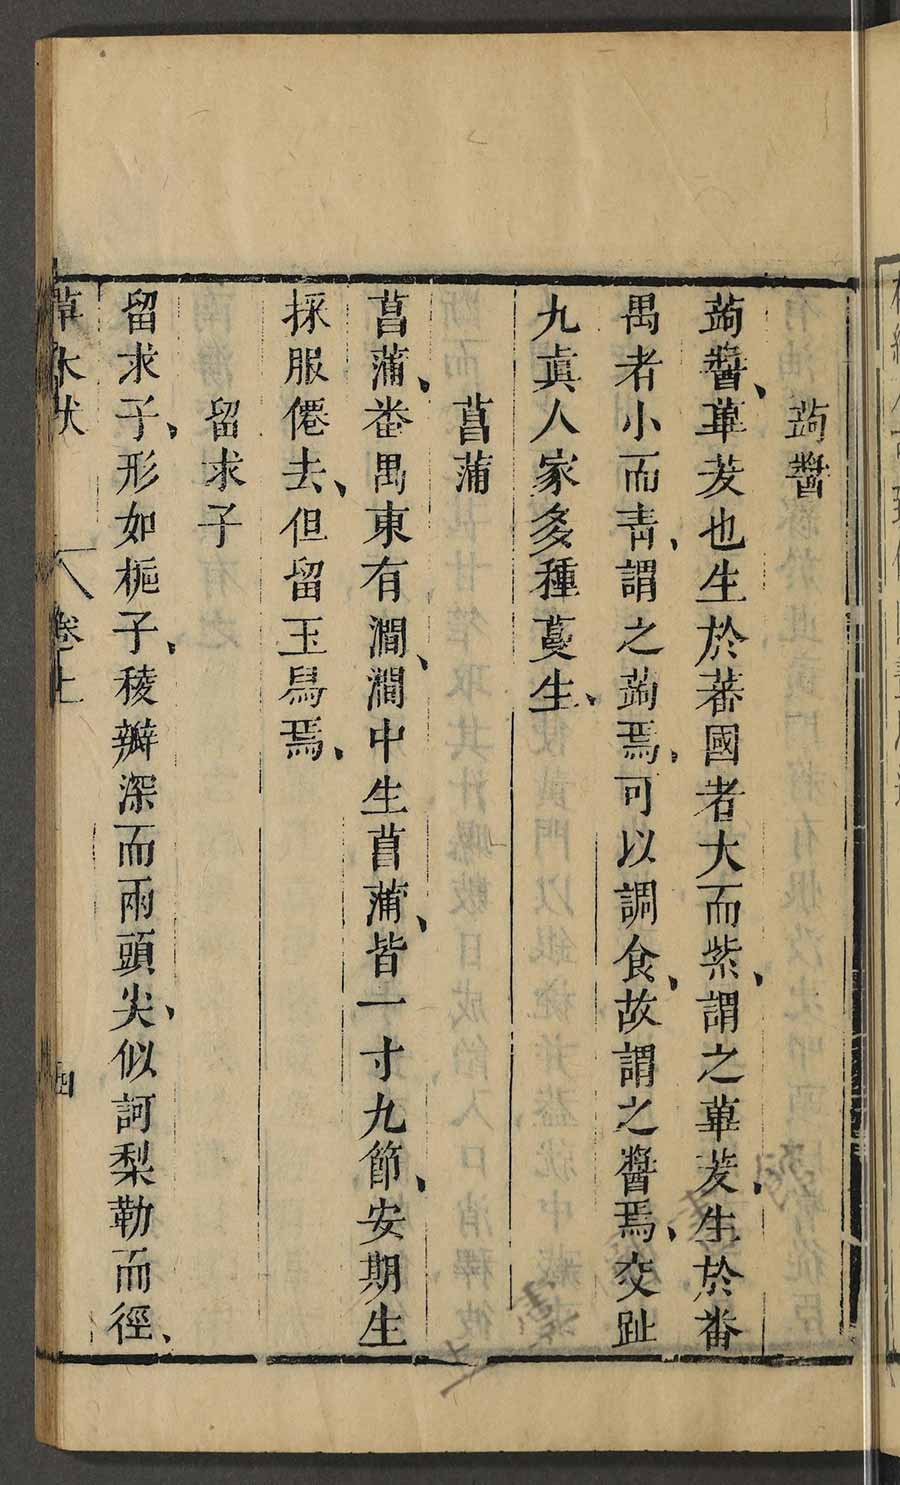 蒟醬
蒟醬、蓽茇也生於蕃國者大而紫、謂之蓽茇、生於番
禺者小而青、謂之蒟焉、可以調食、故謂之醬焉、交趾
九真人家多種蔓生、
菖蒲
菖蒲、番禺東有澗、澗中生菖蒲、皆一寸九節、安期生
採服僊去、但留玉舄焉、
留求子
留求子、形如梔子、稜瓣深而兩頭尖、似訶梨勒而徑、
草木狀 卷上 四